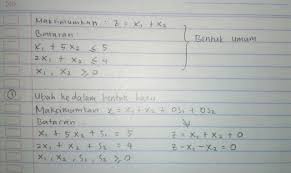 Maksimumkan : Z = X₁ + X₂
Batasan
X₁ + 5X₂ ≤ 5
2X₁ + X₂ ≤ 4
X₁, X₂ ≥ 0
Bentuk umum
① Ubah ke dalam bentuk baku
Maksimumkan Z = X₁ + X₂ + 0S₁ + 0S₂
Batasan
X₁ + 5X₂ + S₁ = 5
2X₁ + X₂ + S₂ = 4
X₁, X₂, S₁, S₂ ≥ 0
Z = X₁ + X₂ + 0
Z - X₁ - X₂ = 0